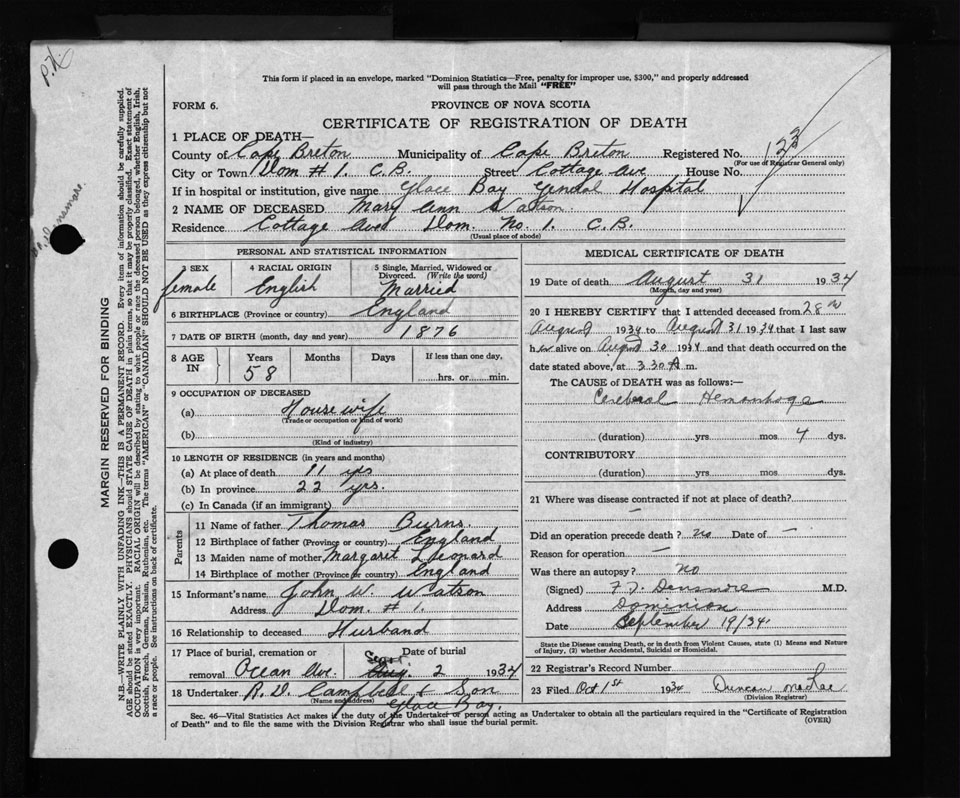 P.H.
This form if placed in an envelope, marked "Dominion Statistics—Free, penalty for improper use, $300," and properly addressed
will pass through the Mail "FREE"
FORM 6.
PROVINCE OF NOVA SCOTIA
CERTIFICATE OF REGISTRATION OF DEATH
1 PLACE OF DEATH—
County of Cape Breton Municipality of Cape Breton Registered No. 123
(For use of Registrar General only)
City or Town Dom # 1. C.B. Street Cottage Ave House No.
If in hospital or institution, give name Glace Bay General Hospital
2 NAME OF DECEASED Mary Ann Watson.
Residence Cottage Ave Dom. No. 1. C.B.
(Usual place of abode)
PERSONAL AND STATISTICAL INFORMATION
3 SEX 4 RACIAL ORIGIN 5 Single, Married, Widowed or
Divorced. (Write the word)
female English Married
6 BIRTHPLACE (Province or country) England
7 DATE OF BIRTH (month, day and year) 1876
8 AGE IN Years Months Days If less than one day,
58 hrs. or min.
9 OCCUPATION OF DECEASED
(a) Housewife
(Trade or occupation or kind of work)
(b)
(Kind of industry)
10 LENGTH OF RESIDENCE (in years and months)
(a) At place of death 11 yrs
(b) In province 22 yrs.
(c) In Canada (if an immigrant)
Parents
11 Name of father Thomas Burns.
12 Birthplace of father (Province or country) England
13 Maiden name of mother Margaret Leonard
14 Birthplace of mother (Province or country) England
15 Informant's name John W. Watson
Address Dom. # 1.
16 Relationship to deceased Husband
17 Place of burial, cremation or Date of burial
removal Ocean Ave. Sept 2 1934
18 Undertaker R. V. Campbell & Son
(Name and address) Glace Bay.
MEDICAL CERTIFICATE OF DEATH
19 Date of death August 31 1934
(Month, day and year)
20 I HEREBY CERTIFY that I attended deceased from 28
August 1934 to August 31 1934 that I last saw
her alive on August 30 1934 and that death occurred on the
date stated above, at 3 30 A m.
The CAUSE of DEATH was as follows:—
Cerebral Hemorrhage
(duration) yrs mos 4 dys.
CONTRIBUTORY
(duration) yrs. mos. dys.
21 Where was disease contracted if not at place of death?
—
Did an operation precede death? no Date of —
Reason for operation —
Was there an autopsy? no
(Signed) Densmore M.D.
Address Dominion
Date September 19/34
State the Disease causing Death, or in death from Violent Causes, state (1) Means and Nature
of Injury, (2) whether Accidental, Suicidal or Homicidal.
22 Registrar's Record Number
23 Filed Oct 1st 1934 Duncan MacRae
(Division Registrar)
Sec. 46—Vital Statistics Act makes it the duty of the Undertaker or person acting as Undertaker to obtain all the particulars required in the "Certificate of Registration
of Death" and to file the same with the Division Registrar who shall issue the burial permit. (OVER)
MARGIN RESERVED FOR BINDING
N.B.—WRITE PLAINLY WITH UNFADING INK—THIS IS A PERMANENT RECORD. Every item of information should be carefully supplied.
AGE should be stated EXACTLY. PHYSICIANS should STATE CAUSE OF DEATH in plain terms, so that it may be properly classified. Exact statement of
OCCUPATION is very important. RACIAL ORIGIN will be described by stating to what people or race the deceased person belonged, whether English, Irish,
Scottish, French, German, Russian, Ruthenian, etc. The terms "AMERICAN" or "CANADIAN" SHOULD NOT BE USED as they express citizenship but not
a race or people. See instructions on back of certificate.